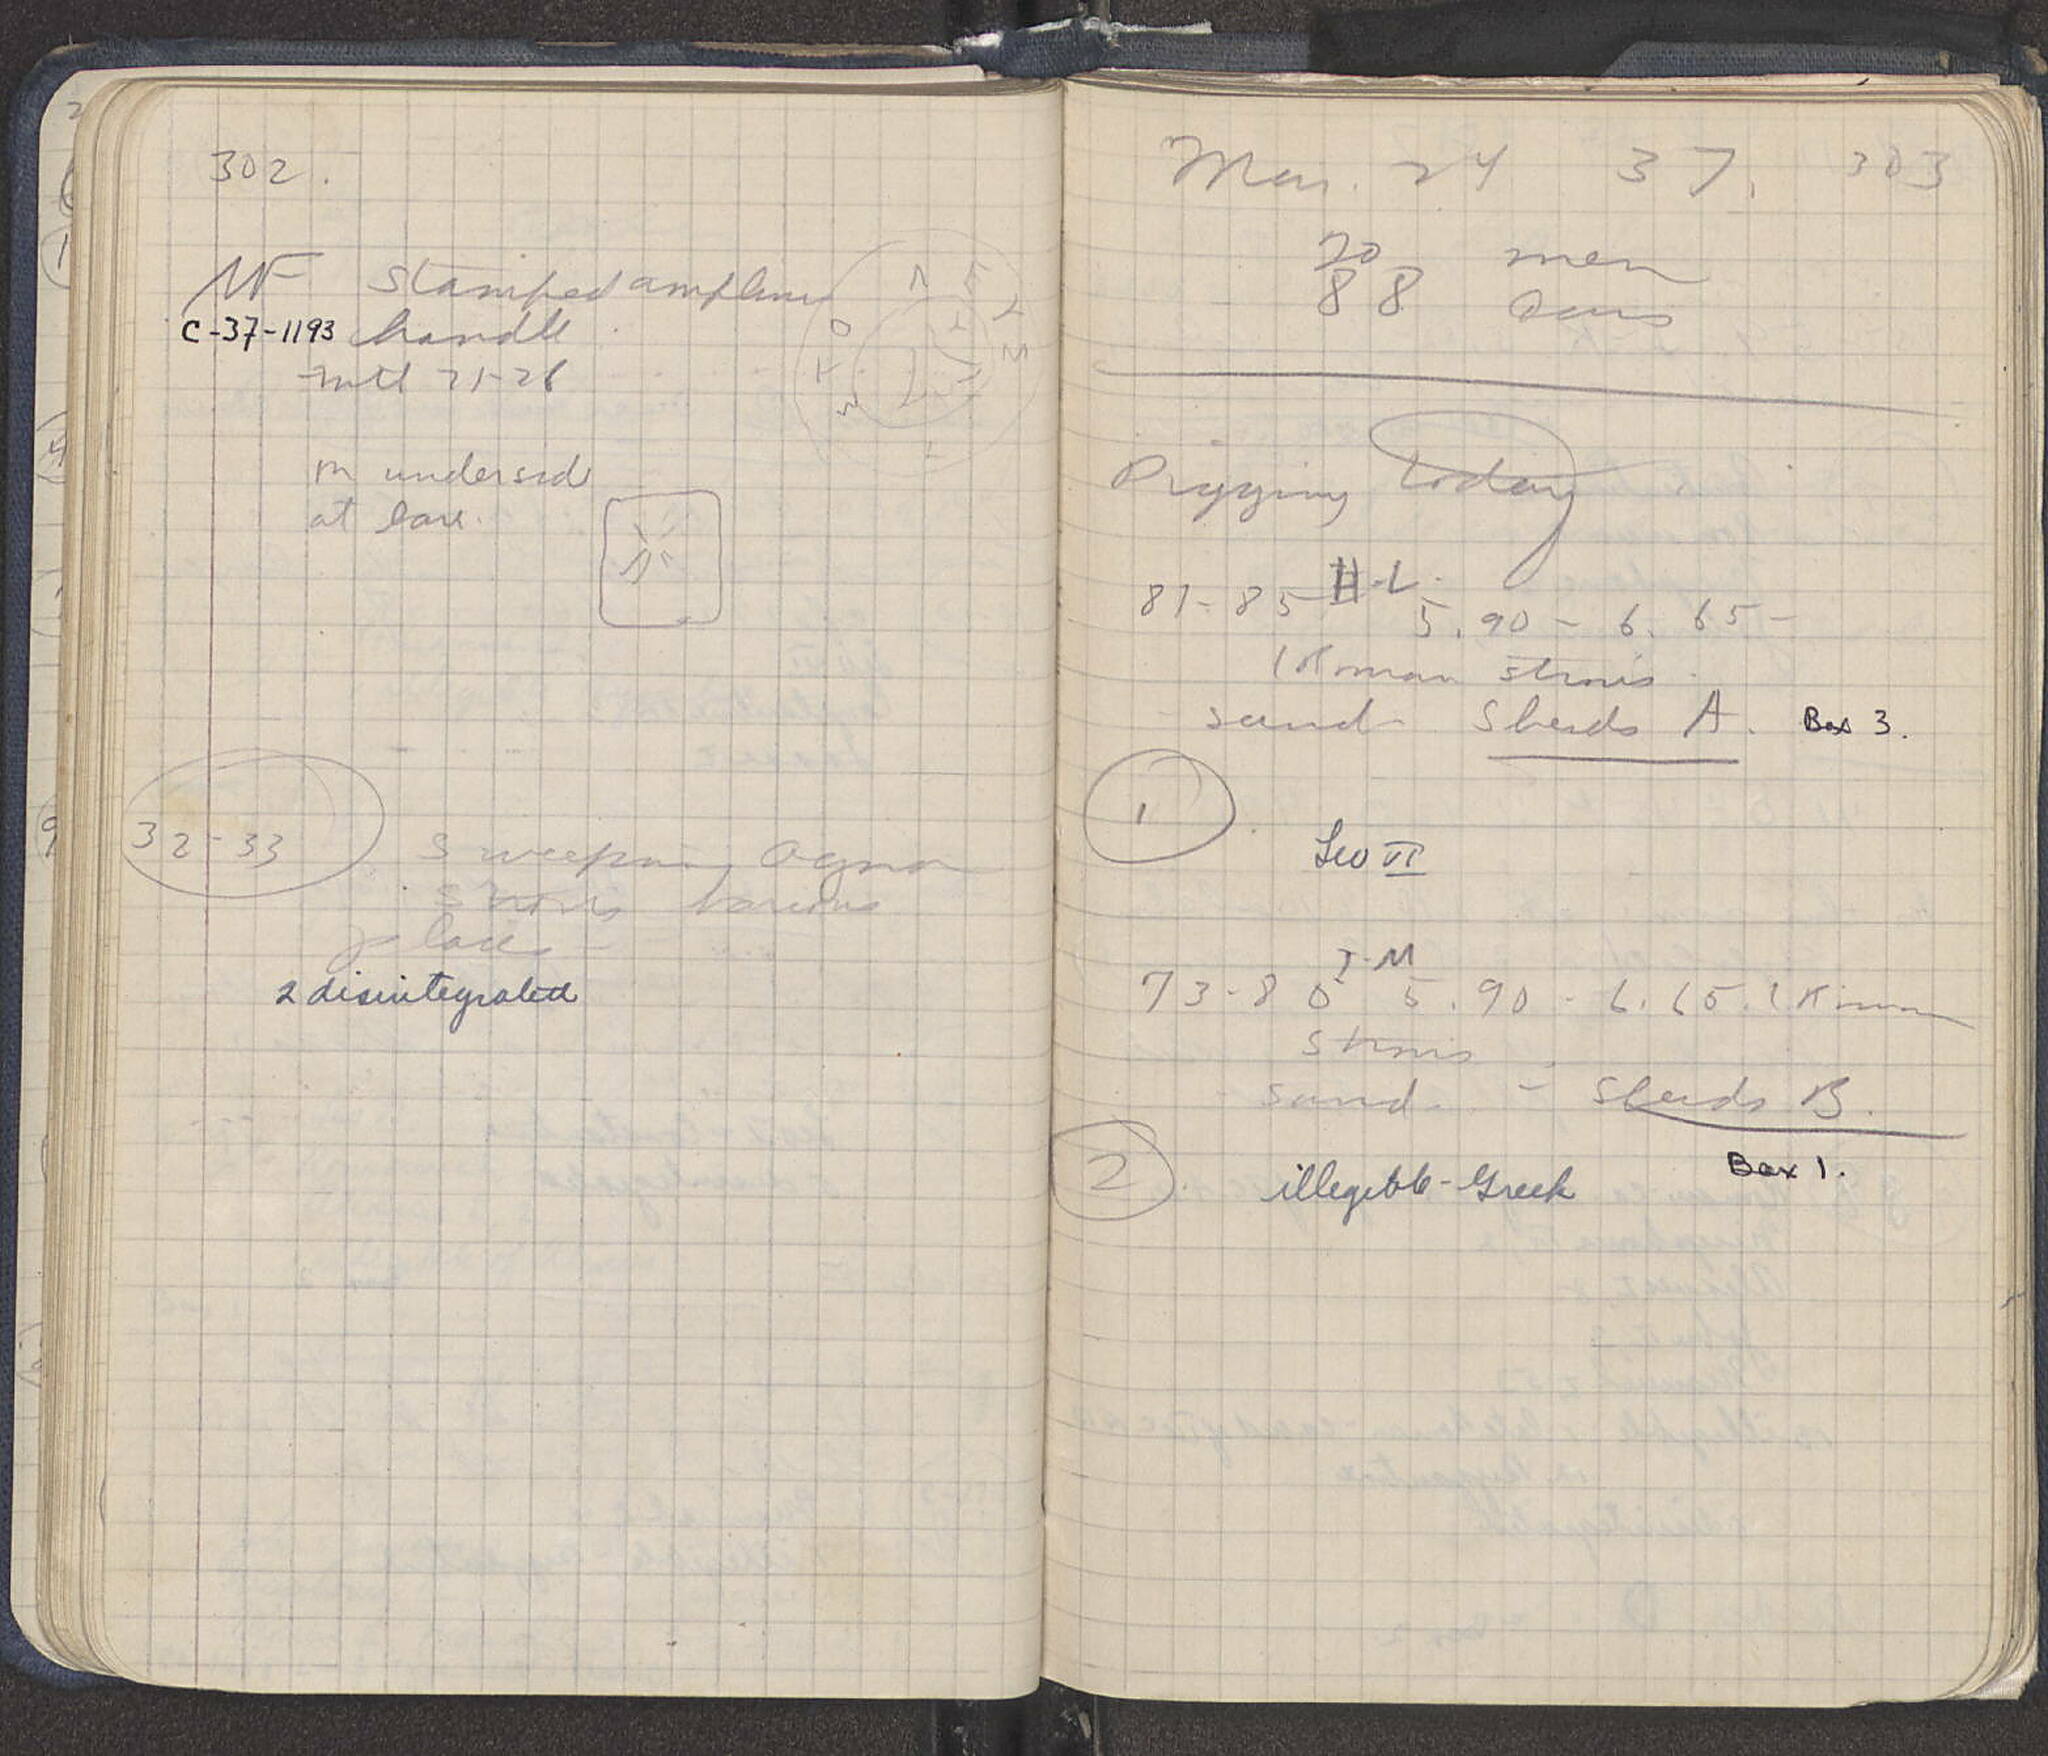 302.
MF Stamped amphora
C-37-1193 handle
on underside
at base.
32-33 Sweeping Agora
strosis various
places -
2 disintegrated
Mar. 24 37. 303
70 men
88 cars
Digging today
81-85 H-L.
5.90 - 6.65 -
(Roman strosis
sand Sherds A. Box 3.
1
Leo VI
J-M
73-80 5.90 - 6.65. (Roman
strosis
sand - Sherds B.
Box 1.
2 illegible - Greek